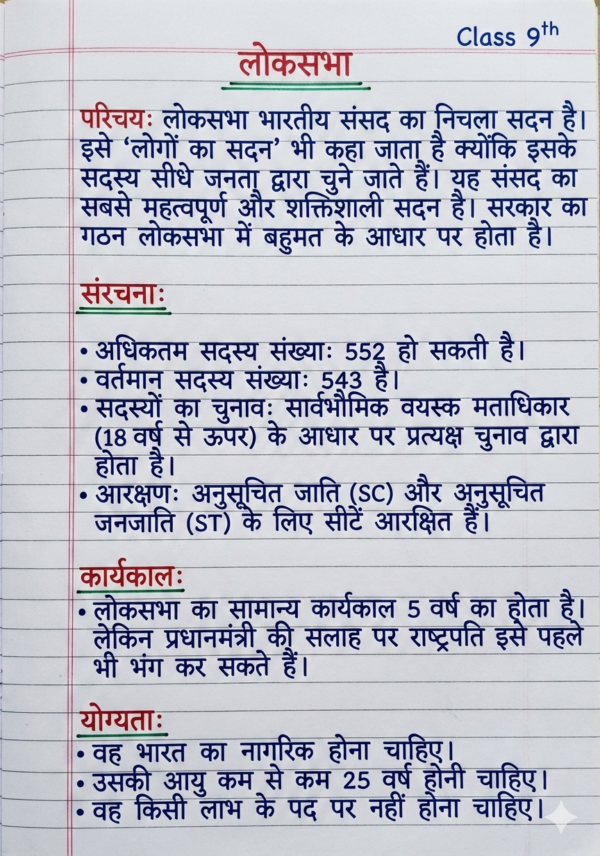 Class 9th
लोकसभा
परिचयः लोकसभा भारतीय संसद का निचला सदन है।
इसे ‘लोगों का सदन’ भी कहा जाता है क्योंकि इसके
सदस्य सीधे जनता द्वारा चुने जाते हैं। यह संसद का
सबसे महत्वपूर्ण और शक्तिशाली सदन है। सरकार का
गठन लोकसभा में बहुमत के आधार पर होता है।
संरचनाः
• अधिकतम सदस्य संख्याः 552 हो सकती है।
• वर्तमान सदस्य संख्याः 543 है।
• सदस्यों का चुनावः सार्वभौमिक वयस्क मताधिकार
(18 वर्ष से ऊपर) के आधार पर प्रत्यक्ष चुनाव द्वारा
होता है।
• आरक्षणः अनुसूचित जाति (SC) और अनुसूचित
जनजाति (ST) के लिए सीटें आरक्षित हैं।
कार्यकालः
• लोकसभा का सामान्य कार्यकाल 5 वर्ष का होता है।
लेकिन प्रधानमंत्री की सलाह पर राष्ट्रपति इसे पहले
भी भंग कर सकते हैं।
योग्यताः
• वह भारत का नागरिक होना चाहिए।
• उसकी आयु कम से कम 25 वर्ष होनी चाहिए।
• वह किसी लाभ के पद पर नहीं होना चाहिए।